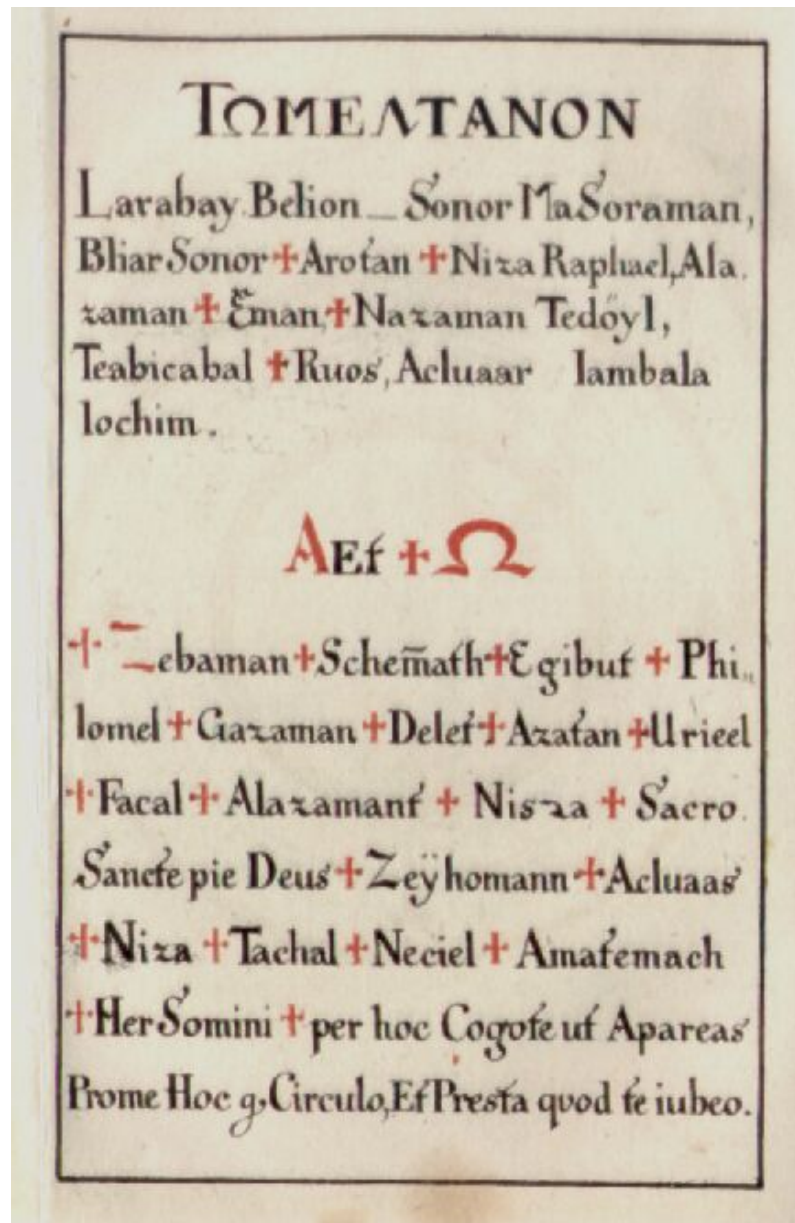 TΩMEΛTANON
Larabay Belion _ Sonor MaSoraman,
Bliar Sonor + Arotan + Niza Raphael, Ala.
zaman + Eman, + Nazaman Tedöyl,
Teabicabal + Ruos, Acluaar Iambala
Iochim.
AEt + Ω
+ Zebaman + Schem̄ath + Egibut + Phi„
lomel + Gazaman + Delet + Azatan + Urieel
+ Facal + Alazamant + Niszа + Sacro.
Sancte pie Deus + Zeÿhomann + Acluaas
+ Niza + Tachal + Neciel + Amatemach
+ Her Somini + per hoc Cogote ut Apareas
Prome Hoc g, Circulo, Et Presta quod te iubeo.